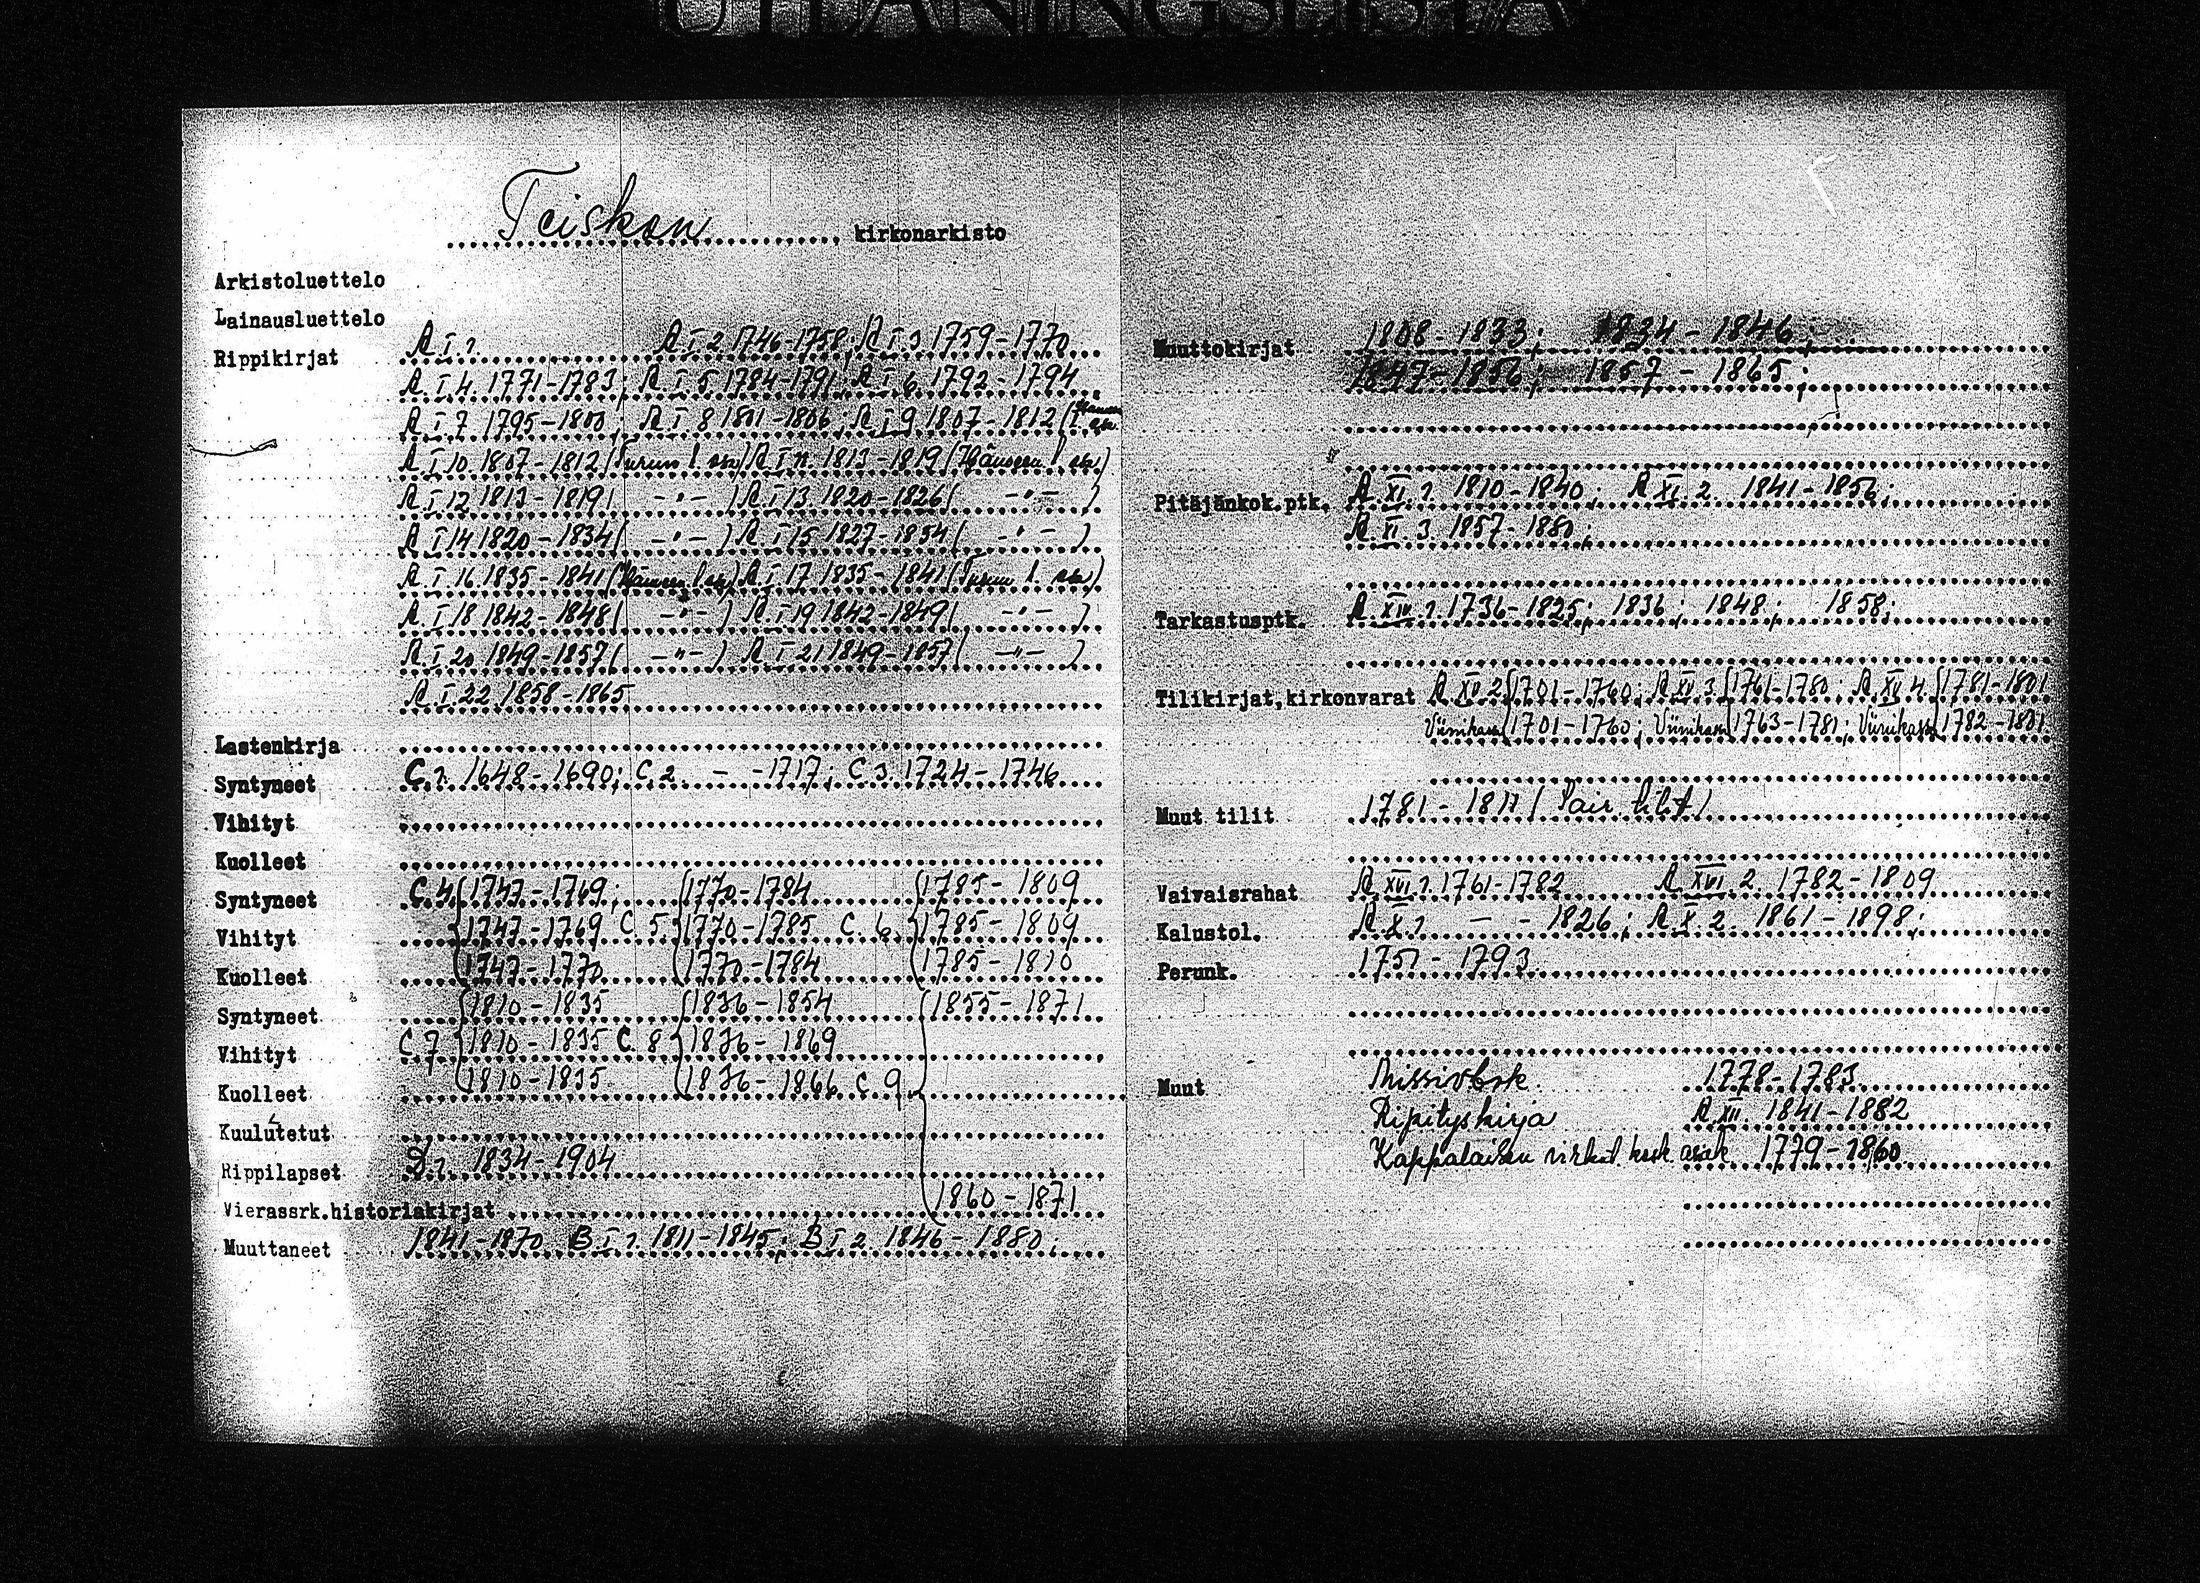 UTLÅNINGSLISTA
Teiskon kirkonarkisto
Arkistoluettelo
Lainausluettelo
Rippikirjat A I 1 A I 2 1746-1758; A I 3 1759-1770
A I 4 1771-1783; A I 5 1784-1791; A I 6 1792-1794
A I 7 1795-1800; A I 8 1801-1806; A I 9 1807-1812 (
A I 10 1807-1812 (Turun l. osa) A I 11 1813-1819 (Hämeen l. osa)
A I 12 1813-1819 ( -"- ) A I 13 1820-1826 ( -"- )
A I 14 1820-1834 ( -"- ) A I 15 1827-1854 ( -"- )
A I 16 1835-1841 (Hämeen l. osa) A I 17 1835-1841 (Turun l. osa)
A I 18 1842-1848 ( -"- ) A I 19 1842-1849 ( -"- )
A I 20 1849-1857 ( -"- ) A I 21 1849-1857 ( -"- )
A I 22 1858-1865
Lastenkirja
Syntyneet C.1. 1648-1690; C.2. - -1717; C.3. 1724-1746
Vihityt
Kuolleet
Syntyneet C.4 1747-1769; 1770-1784 1785-1809
Vihityt 1747-1769 C.5. 1770-1785 C.6. 1785-1809
Kuolleet 1747-1770 1770-1784 1785-1810
Syntyneet 1810-1835 1836-1854 1855-1871
Vihityt C.7 1810-1835 C.8 1836-1869
Kuolleet 1810-1835 1836-1866 C.9
Kuulutetut
Rippilapset D.1. 1834-1904
Vierassrk.historiakirjat 1860-1871
Muuttaneet 1841-1870 B I 1. 1811-1845; B I 2. 1846-1880;
Muuttokirjat 1808-1833; 1834-1846;
1847-1856; 1857-1865;
Pitäjänkok.ptk. A XI 1. 1810-1840; A XI 2. 1841-1856;
A XI 3. 1857-1880;
Tarkastusptk. A XIV 1. 1736-1825; 1836; 1848; 1858;
Tilikirjat,kirkonvarat A XV 2. 1701-1760; A XV 3. 1761-1780; A XV 4. 1781-1801
Viinikassa 1701-1760; Viinikassa 1763-1781; Viinikassa 1782-1801
Muut tilit 1781-1811 (Sair. tilit)
Vaivaisrahat A XVI 1. 1761-1782 A XVI 2. 1782-1809
Kalustol. A X 1 - - 1826; A X 2. 1861-1898;
Perunk. 1751-1793
Muut Missivbok 1778-1783
Ripityskirja A XII 1841-1882
Kappalaisen virkat. kosk. asiak. 1779-1860